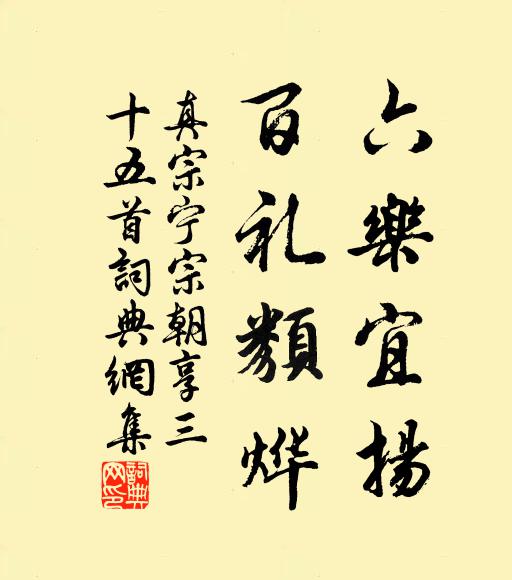 六樂宜揚
百礼纇烨
真宗宁宗朝享三
十五首詞典網集
詞典網印